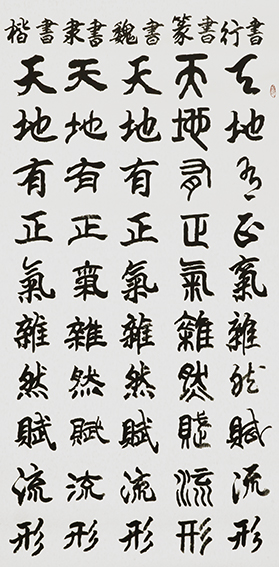 楷書 隶書 魏書 篆書 行書
天地有正氣雜然賦流形
天地有正氣雜然賦流形
天地有正氣雜然賦流形
天地有正氣雜然賦流形
天地有正氣雜然賦流形